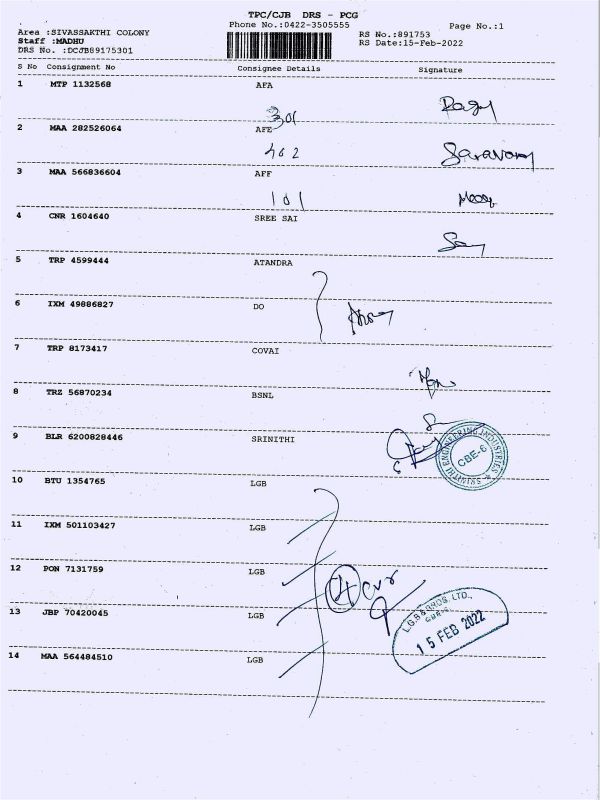 TPC/CJB DRS - PCG
Phone No.:0422-3505555
Page No.:1
Area :SIVASSAKTHI COLONY
Staff :MADHU
DRS No. :DCJB89175301
RS No.:891753
RS Date:15-Feb-2022
S No Consignment No Consignee Details Signature
1 MTP 1132568 AFA
301
2 MAA 282526064 AFE
402
Saravan
3 MAA 566836604 AFF
101
4 CNR 1604640 SREE SAI
5 TRP 4599444 ATANDRA
6 IXM 49886827 DO
7 TRP 8173417 COVAI
8 TRZ 56870234 BSNL
9 BLR 6200828446 SRINITHI
SRINITHI ENGINEERING INDUSTRIES
CBE-6
10 BTU 1354765 LGB
11 IXM 501103427 LGB
12 PON 7131759 LGB
4 cvr
13 JBP 70420045 LGB
L.G.B & BROS. LTD.,
15 FEB 2022
14 MAA 564484510 LGB